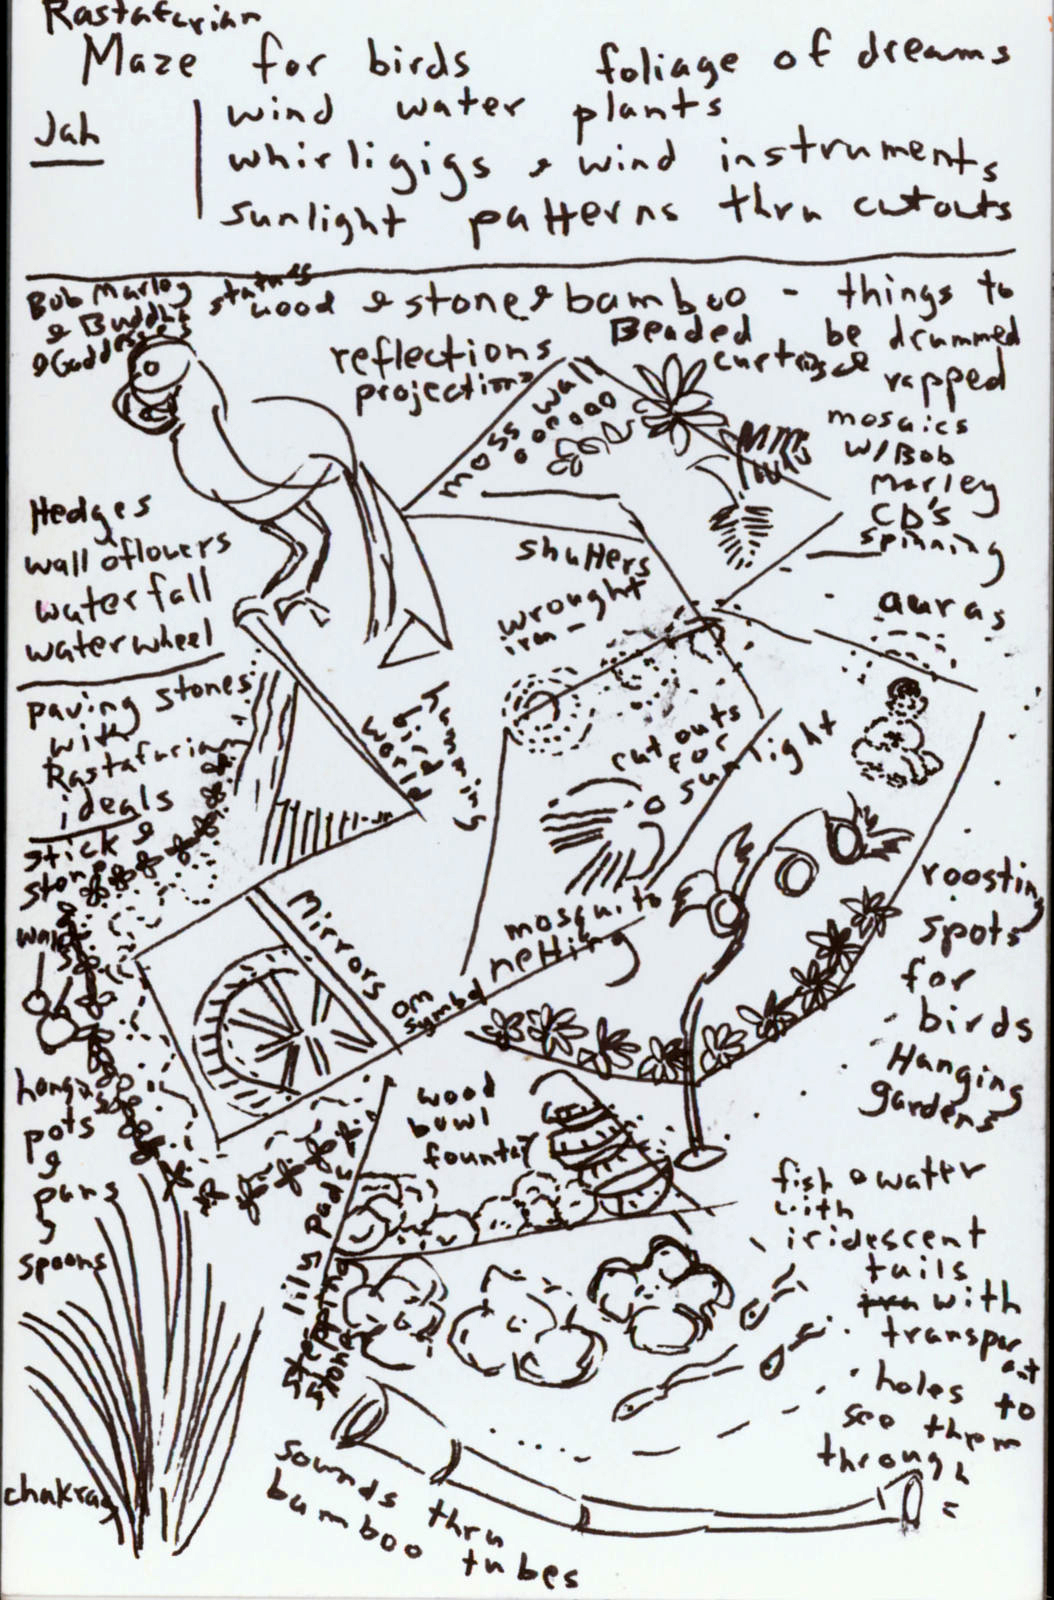 Rastafurian
Maze for birds foliage of dreams
Jah
wind water plants
whirligigs & wind instruments
sunlight patterns thru cutouts
Bob Marley
& Buddha
& Goddesses
statues
wood & stone & bamboo - things to
be drummed
rapped
Beaded
curtains
reflections
projections
moss wall
mosaics
w/Bob
Marley
CD's
spinning
Hedges
wall oflowers
waterfall
waterwheel
shutters
wrought
iron -
auras
paving stones
with
Rastafurian
ideals
humming
bird
world
cut outs
for
sunlight
stick &
stone
walls
Mirrors
om
symbol
mosquito
netting
roosting
spots
for
birds
Hanging
gardens
hanging
pots
&
pans
&
spoons
wood
bowl
fountain
lily pads
stepping
stones
fish & water
with
iridescent
tails
with
transparant
holes to
see them
through
chakras
sounds thru
bamboo tubes